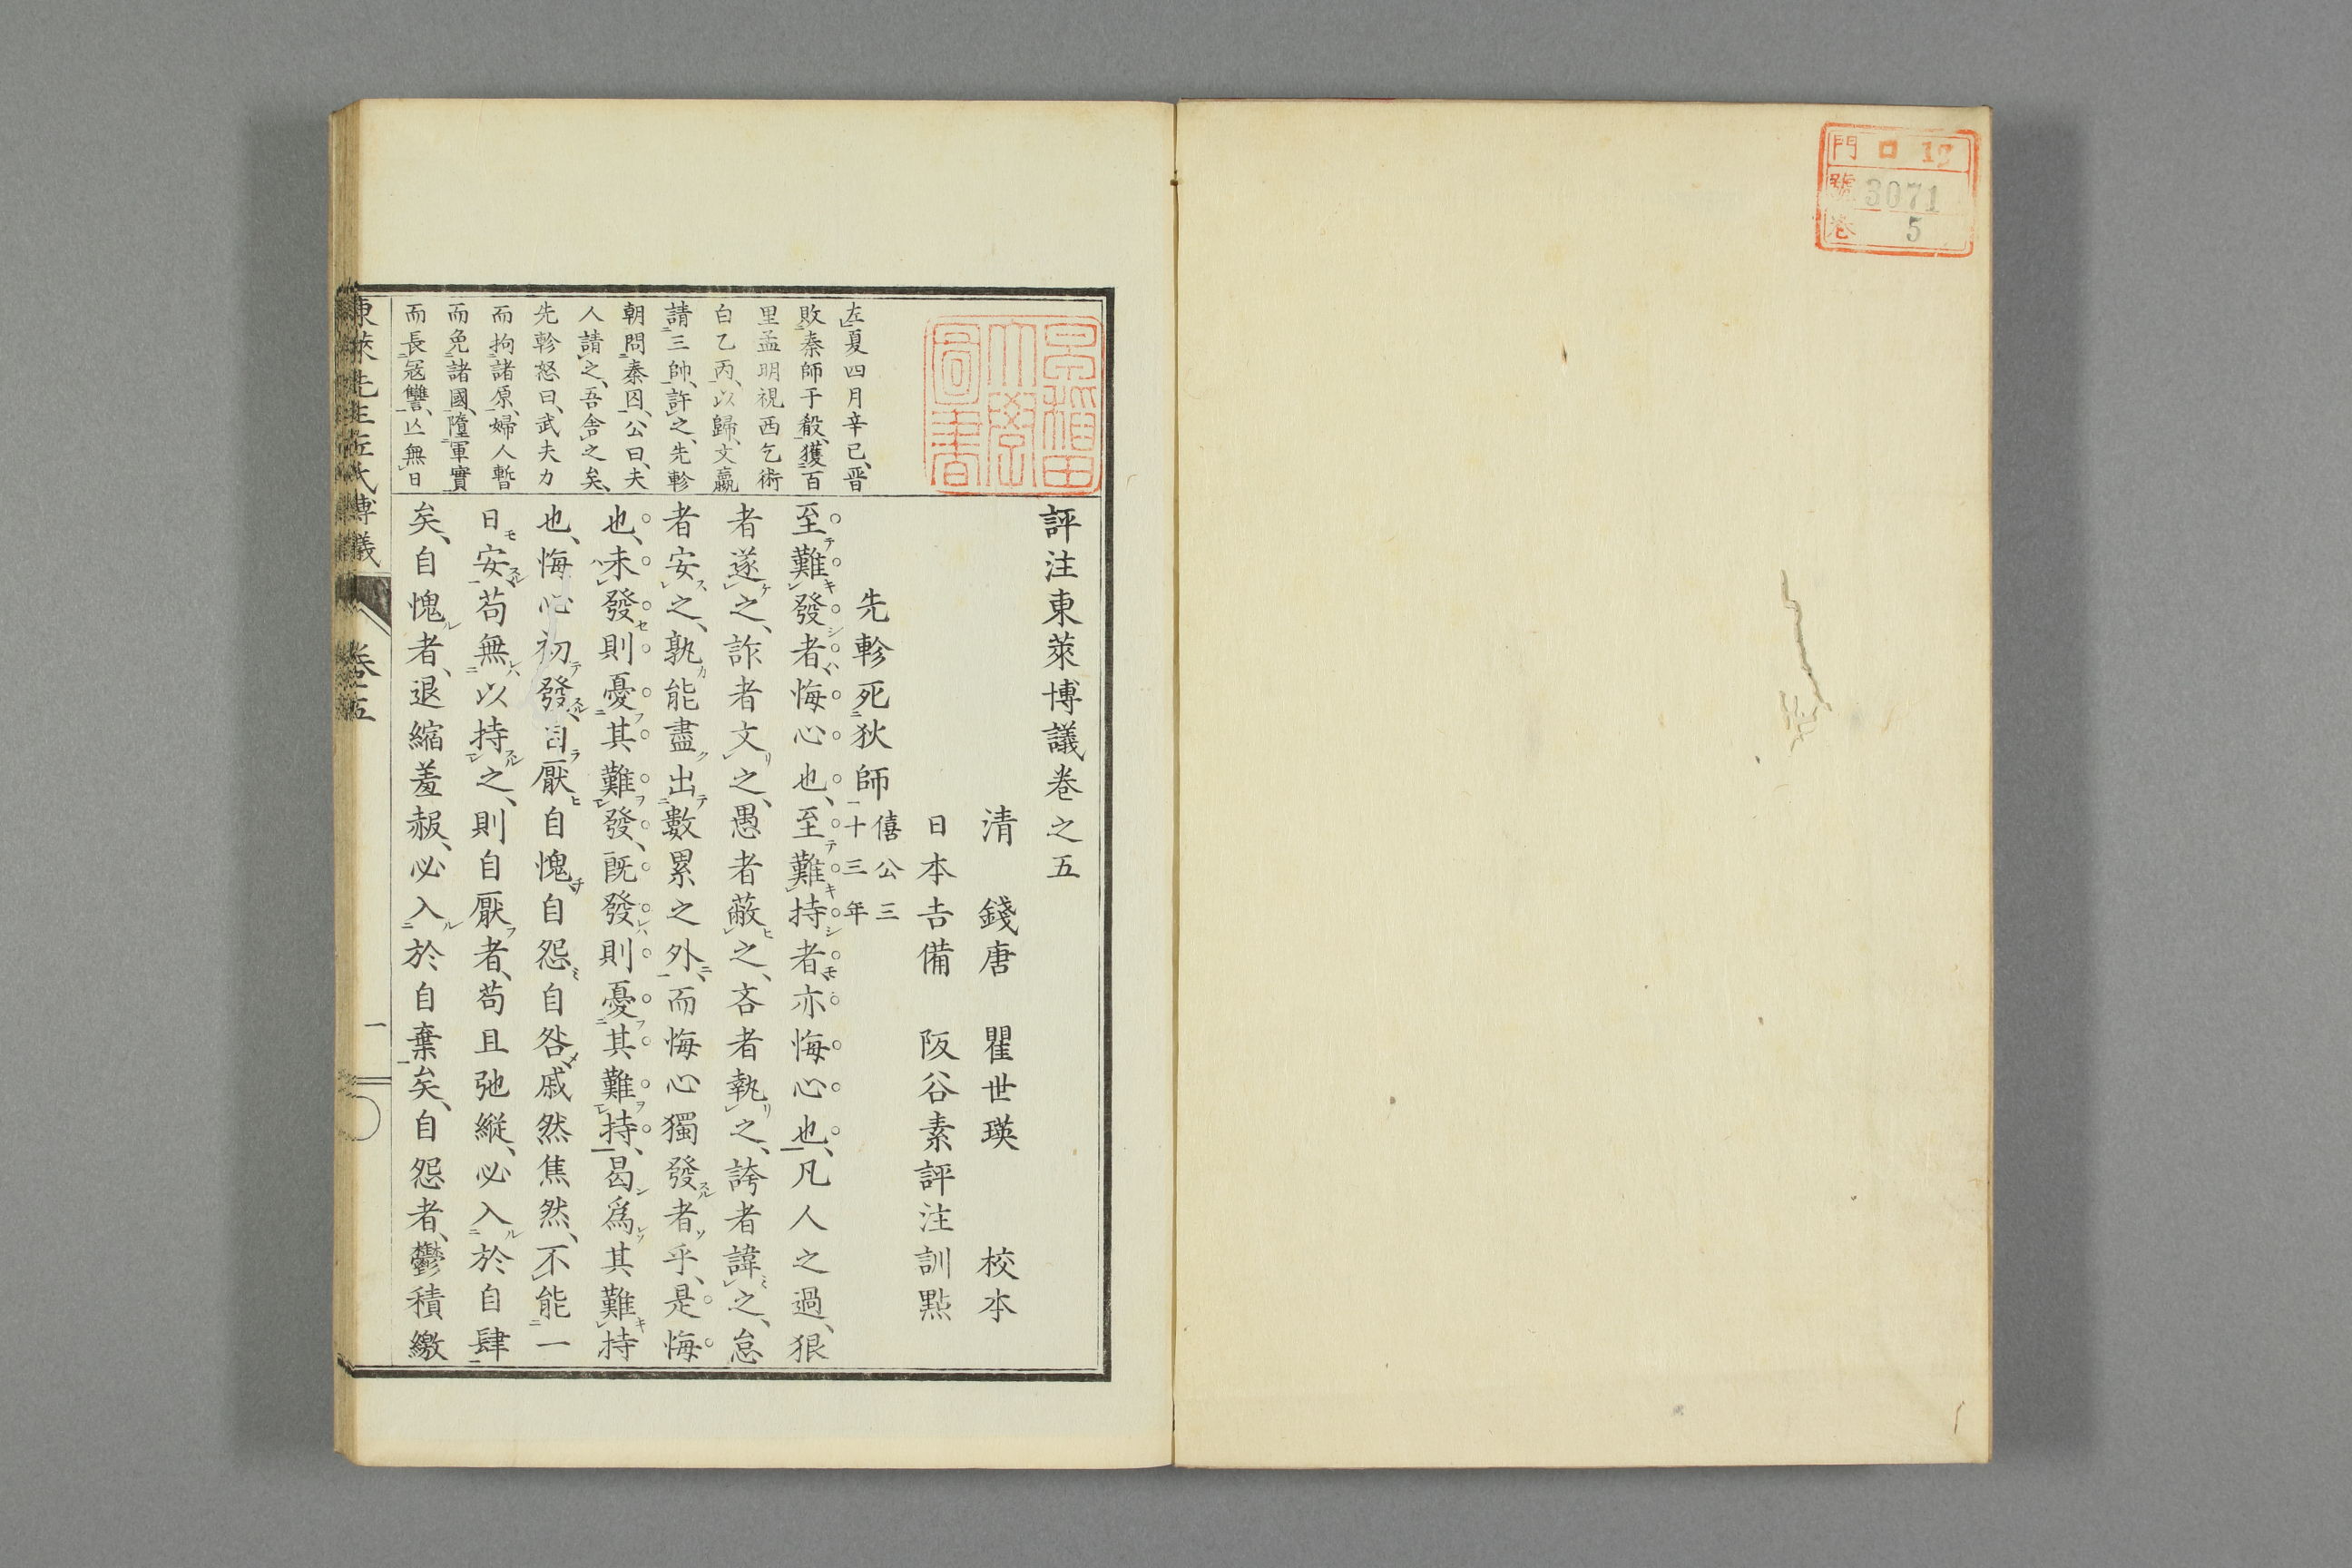 門 ロ 12
號 3071
卷 5
早稲田
大學
圖書
評注東萊博議卷之五
清 錢唐 瞿世瑛 校本
日本吉備 阪谷素評注訓點
先軫死狄師 僖公三十三年
至難發者悔心也至難持者亦悔心也凡人之過狠
者遂之詐者文之愚者蔽之吝者執之誇者諱之怠
者安之孰能盡出數累之外而悔心獨發者乎是悔
也未發則憂其難發既發則憂其難持曷爲其難持
也悔心初發自厭自愧自怨自咎戚然焦然不能一
日安苟無以持之則自厭者苟且弛縱必入於自肆
矣自愧者退縮羞赧必入於自棄矣自怨者鬱積繳
左夏四月辛巳晋
敗秦師于殽獲百
里孟明視西乞術
白乙丙以歸文嬴
請三帥許之先軫
朝問秦囚公曰夫
人請之吾舍之矣
先軫怒曰武夫力
而拘諸原婦人暫
而免諸國墮軍實
而長寇讐亾無日
東萊先生左氏博議
卷五
一